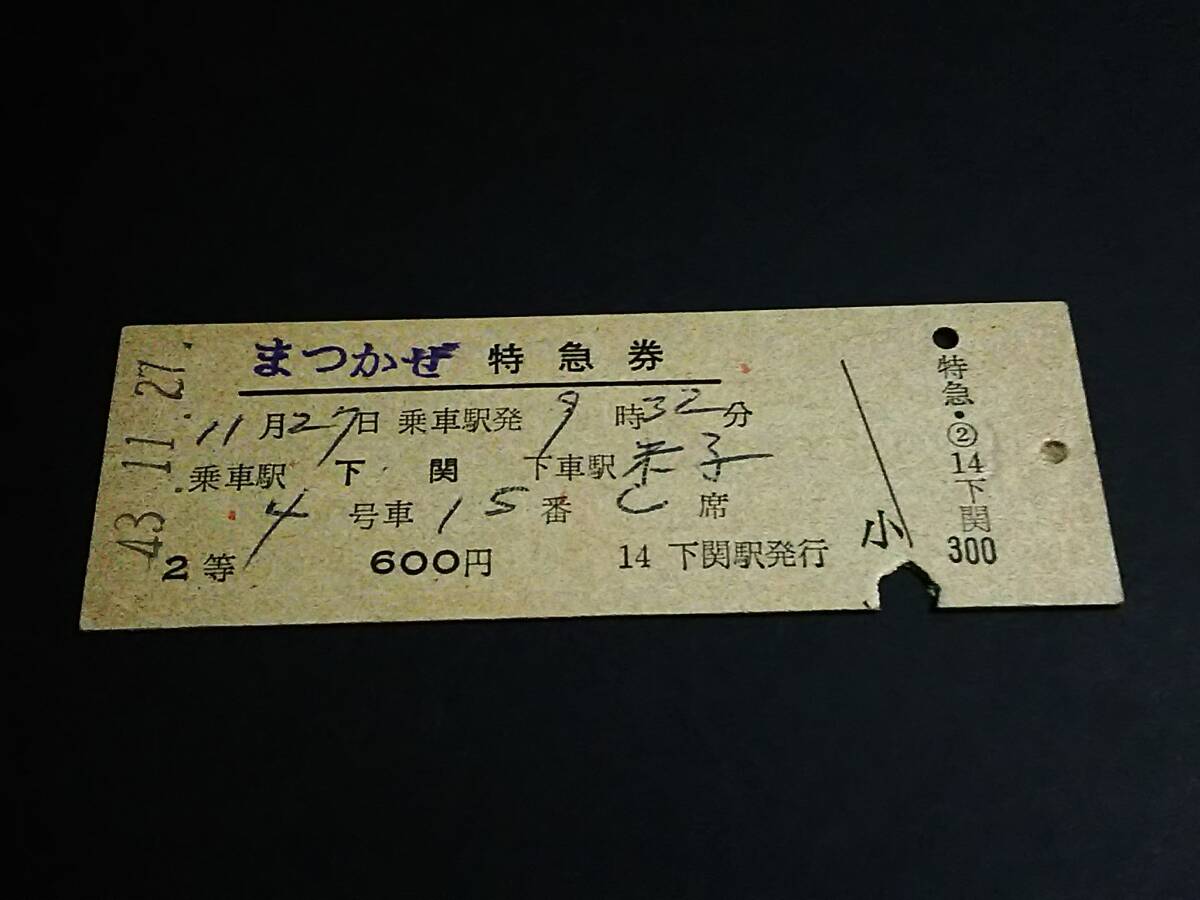 43.11.27.
まつかぜ 特急券
11月27日 乗車駅発 9時32分
乗車駅 下関 下車駅 米子
4号車 15番 C席
2等 600円 14 下関駅発行
小
特急・②14下関
300